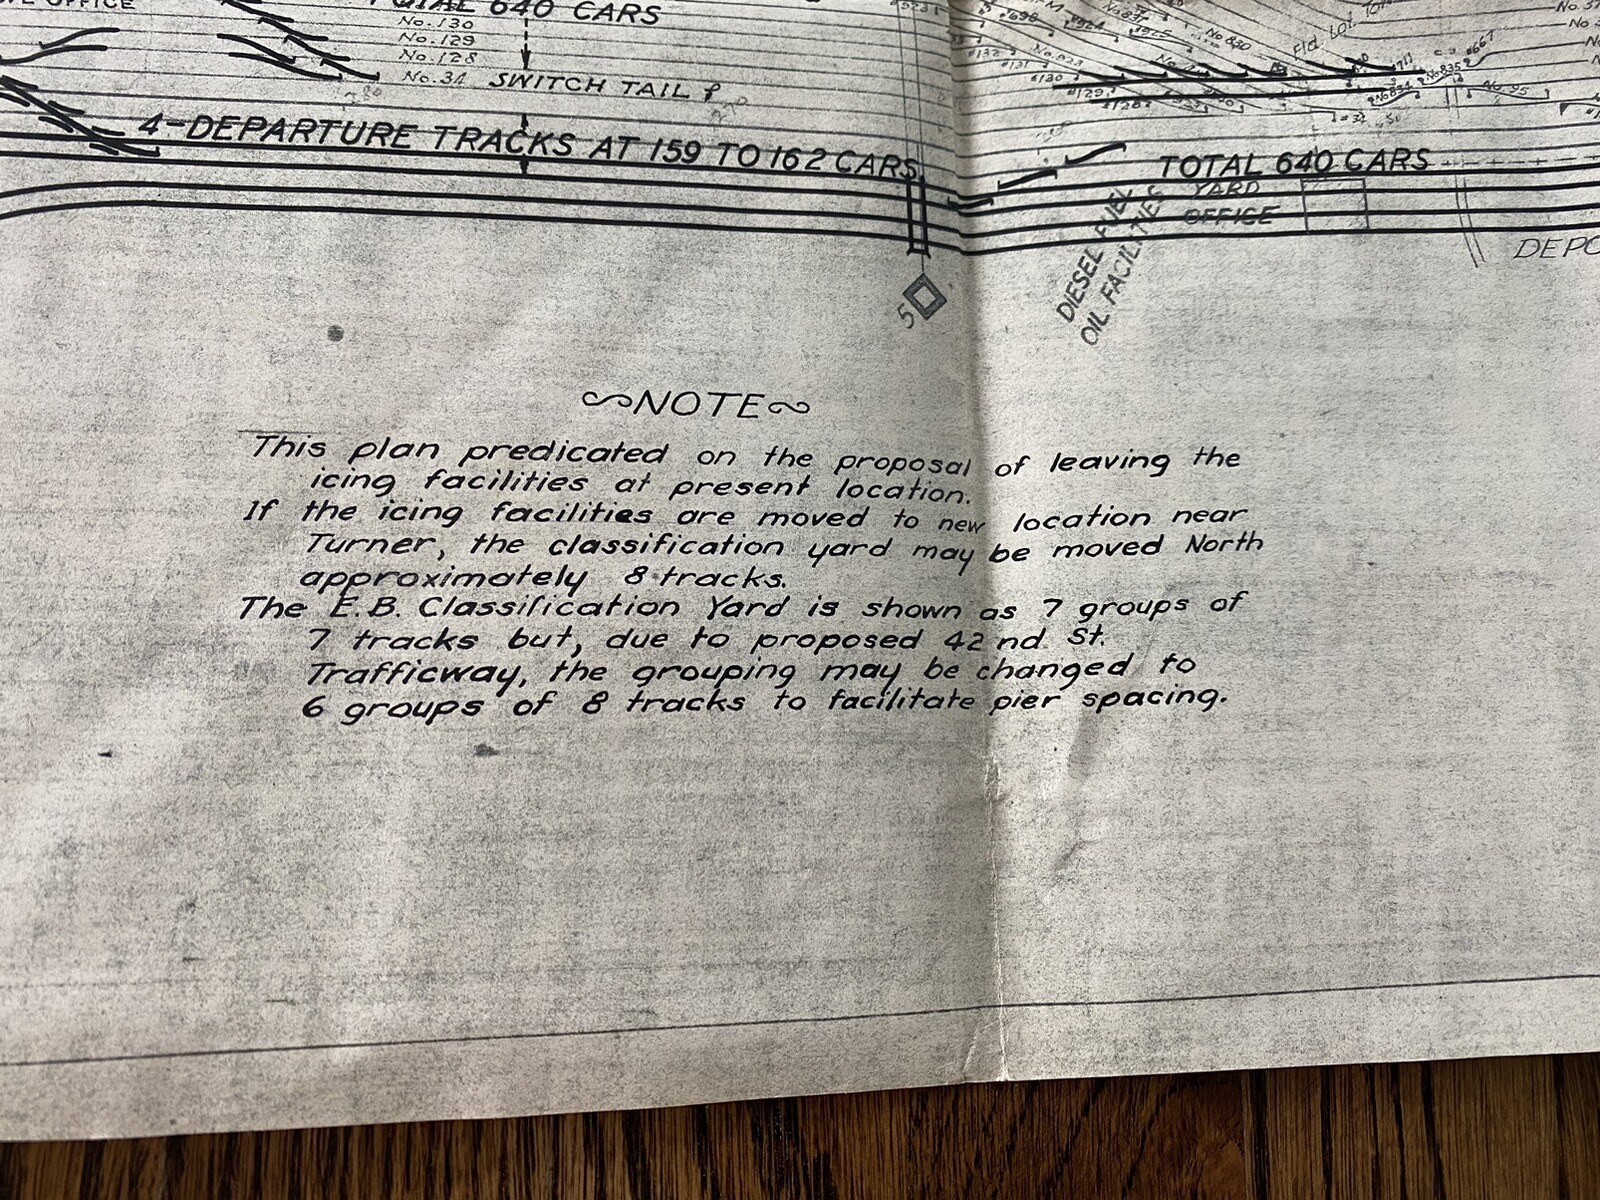 OFFICE
TOTAL 640 CARS
No. 130
No. 129
No. 128
No. 34
SWITCH TAIL
4-DEPARTURE TRACKS AT 159 TO 162 CARS
#132
#131
#130
#129
#128
No. 830
No. 835
No. 95
TOTAL 640 CARS
YARD
OFFICE
DIESEL FUEL
OIL FACILITIES
DEPO
5
NOTE
This plan predicated on the proposal of leaving the
icing facilities at present location.
If the icing facilities are moved to new location near
Turner, the classification yard may be moved North
approximately 8 tracks.
The E.B. Classification Yard is shown as 7 groups of
7 tracks but, due to proposed 42nd St.
Trafficway, the grouping may be changed to
6 groups of 8 tracks to facilitate pier spacing.